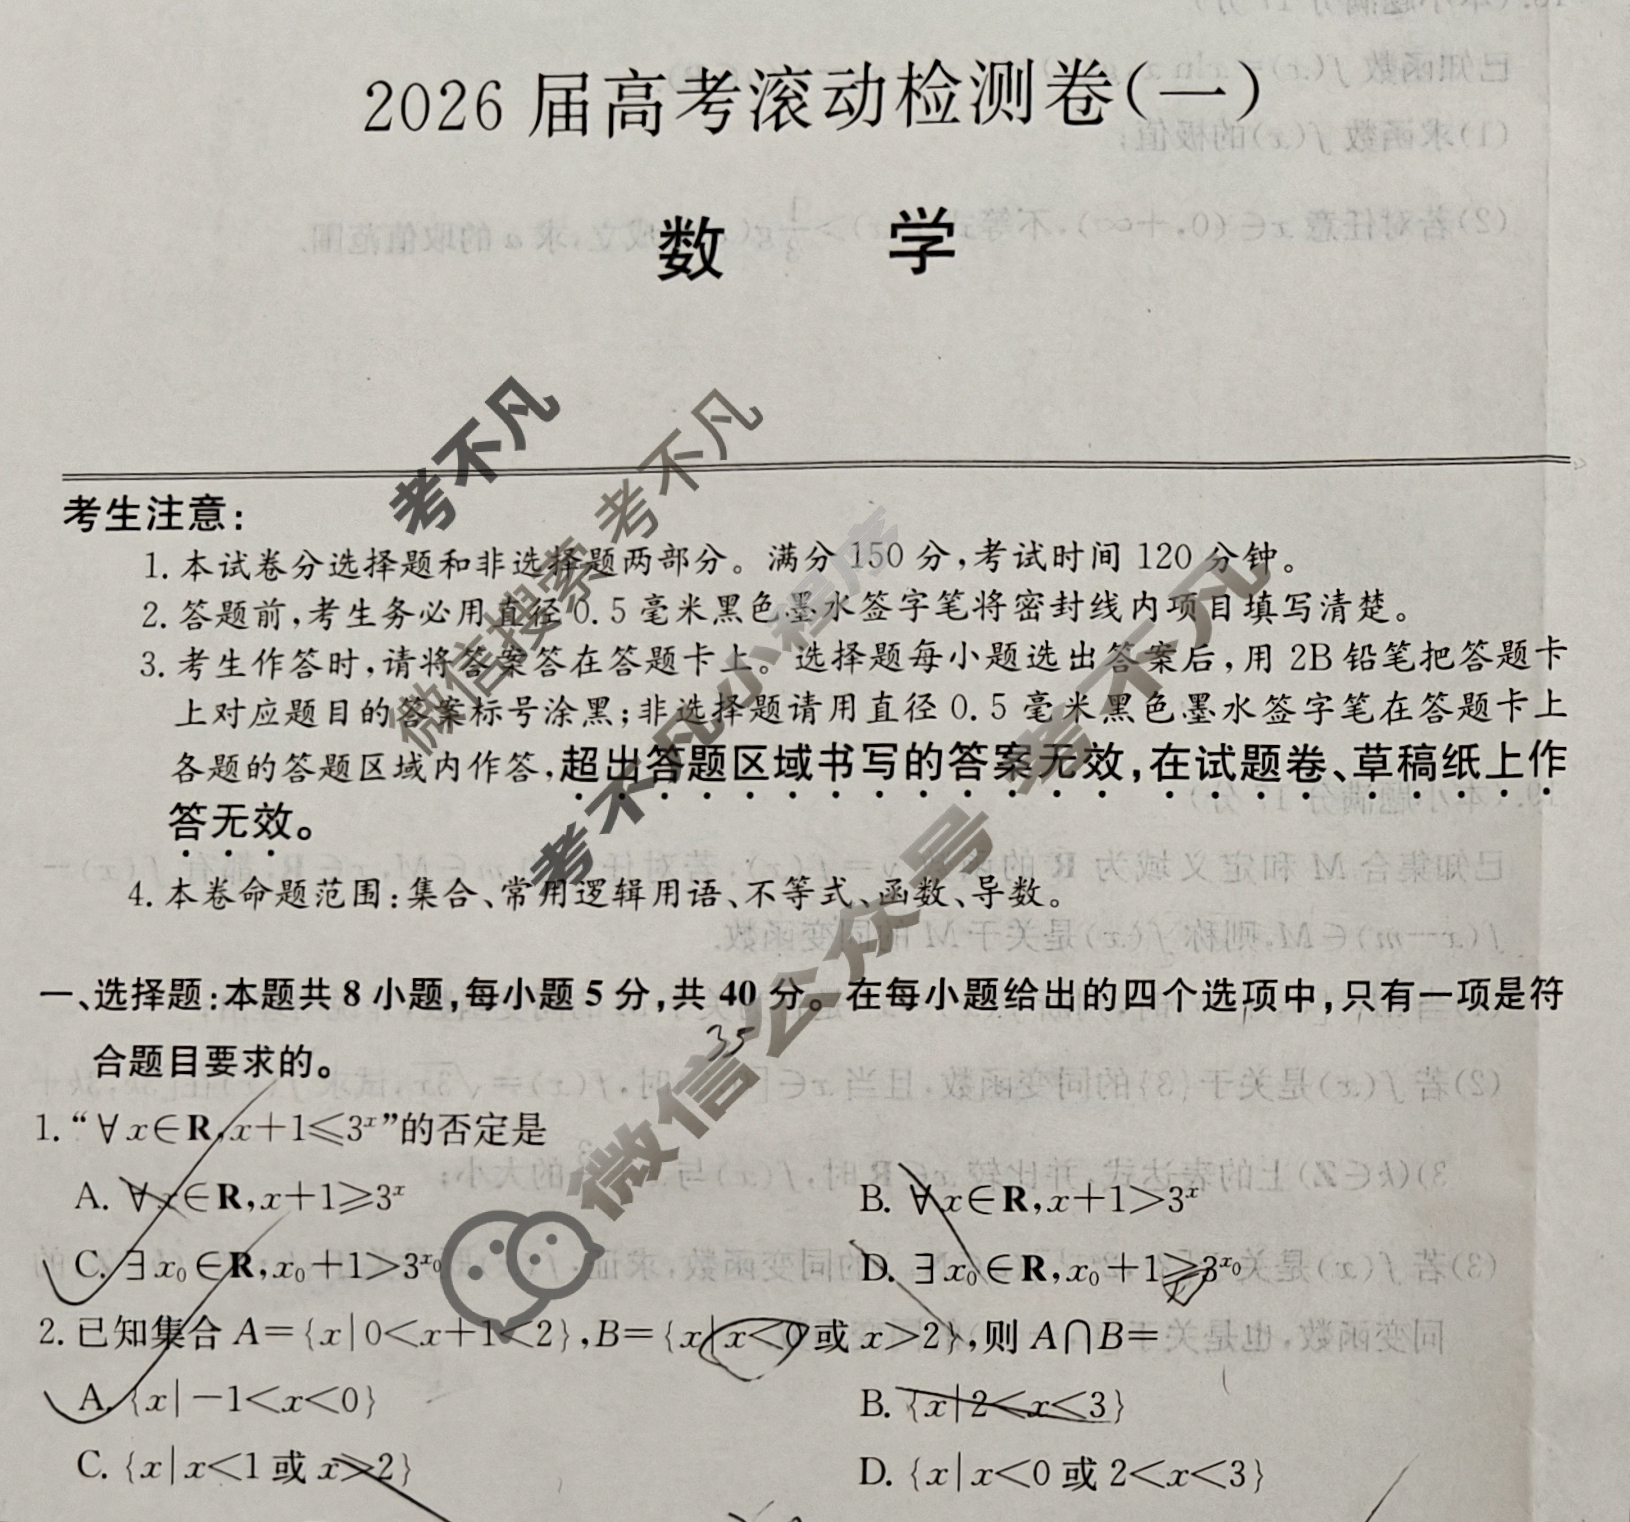 2026届高考滚动检测卷(一)
数 学
考生注意：
1. 本试卷分选择题和非选择题两部分。满分150分，考试时间120分钟。
2. 答题前，考生务必用直径0.5毫米黑色墨水签字笔将密封线内项目填写清楚。
3. 考生作答时，请将答案答在答题卡上。选择题每小题选出答案后，用2B铅笔把答题卡
上对应题目的答案标号涂黑；非选择题请用直径0.5毫米黑色墨水签字笔在答题卡上
各题的答题区域内作答，超出答题区域书写的答案无效，在试题卷、草稿纸上作
答无效。
4. 本卷命题范围：集合、常用逻辑用语、不等式、函数、导数。
一、选择题：本题共8小题，每小题5分，共40分。在每小题给出的四个选项中，只有一项是符
35
合题目要求的。
1. “∀x∈R，x+1≤3ˣ”的否定是
A. ∀x∈R，x+1≥3ˣ B. ∀x∈R，x+1>3ˣ
C. ∃x₀∈R，x₀+1>3^x₀ D. ∃x₀∈R，x₀+1≥3^x₀
2. 已知集合A={x|0<x+1<2}，B={x|x<0或x>2}，则A∩B=
A. {x|−1<x<0} B. {x|2<x<3}
C. {x|x<1或x>2} D. {x|x<0或2<x<3}
考不凡
微信搜索 考不凡
考不凡小程序
微信公众号 考不凡